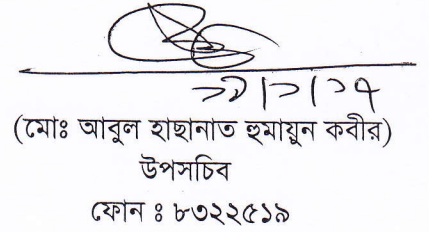 (মোঃ আবুল হাছানাত হুমায়ুন কবীর)
উপসচিব
ফোন ঃ ৮৩২২৫১৯